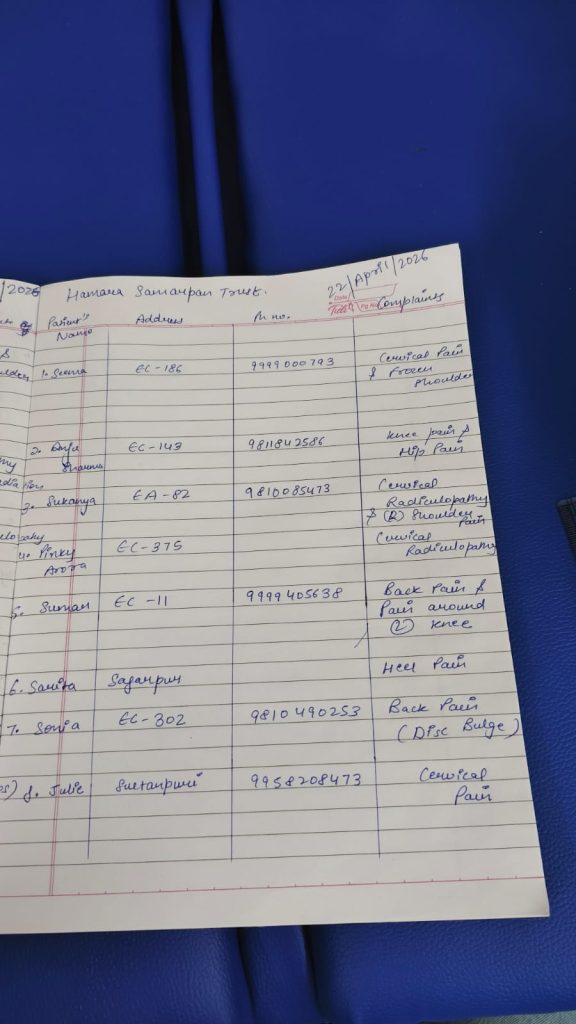 /2026 Hamara Samarpan Trust. 22/April/2026
Patient's Name Address M no. Complaints
1. Seema EC-186 9999000793 Cervical Pain
& Frozen
shoulder
2. Anju EC-143 9811842586 Knee pain &
Sharma Hip Pain
3. Sukanya EA-82 9810085473 Cervical
Radiculopathy
& (R) Shoulder
Pain
4. Pinky EC-375 Cervical
Arora Radiculopathy
5. Suman EC-11 9999405638 Back Pain &
Pain around
(L) Knee
6. Sarita Sagarpur Heel Pain
7. Sonia EC-302 9810490253 Back Pain
(Disc Bulge)
8. Julie Sultanpuri 9958208473 Cervical
Pain